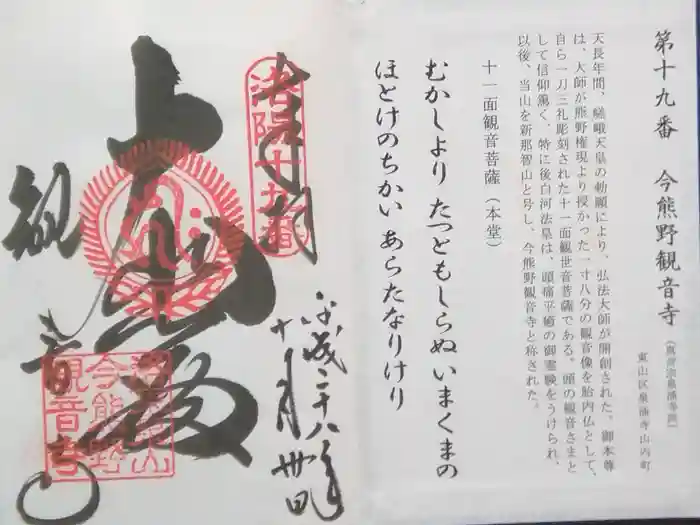 第十九番　今熊野観音寺
（真言宗泉涌寺派）
東山区泉涌寺山内町
天長年間、嵯峨天皇の勅願により、弘法大師が開創された。御本尊
は、大師が熊野権現より授かった一寸八分の観音像を胎内仏として、
自ら一刀三礼彫刻された十一面観世音菩薩である。頭の観音さまと
して信仰篤く、特に後白河法皇は、頭痛平癒の御霊験をうけられ、
以後、当山を新那智山と号し、今熊野観音寺と称された。
十一面観音菩薩（本堂）
むかしより たつともしらぬ いまくまの
ほとけのちかい あらたなりけり
洛陽十九番
平成二十八年
十月卅日
観音寺
今熊野
観音寺